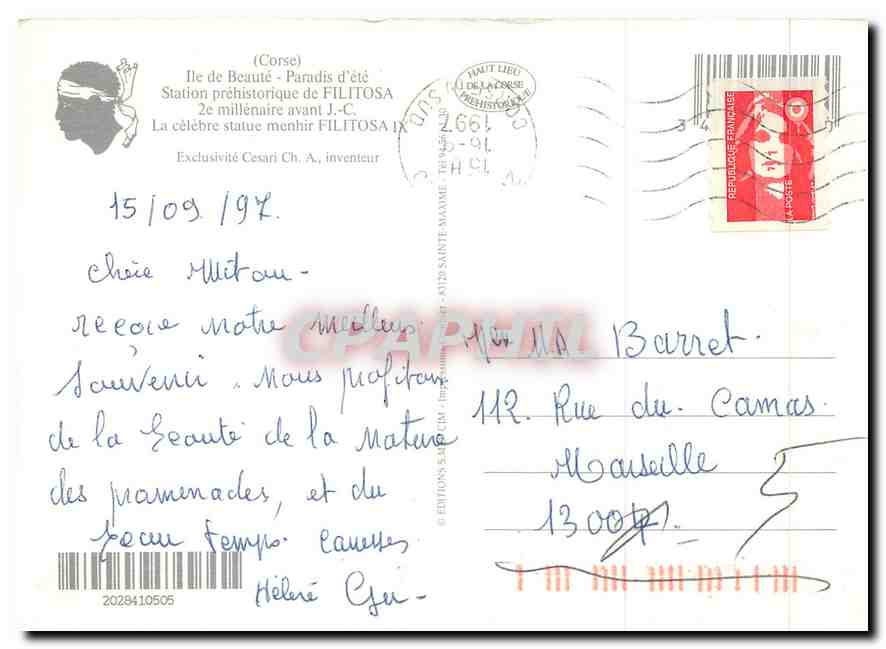 (Corse)
Ile de Beauté - Paradis d'été
Station préhistorique de FILITOSA
2e millénaire avant J.-C.
La célèbre statue menhir FILITOSA IX
Exclusivité Cesari Ch. A., inventeur
HAUT LIEU
DE LA CORSE
PREHISTORIQUE
SUD
1997
16-9
15 H
REPUBLIQUE FRANÇAISE
LA POSTE
15/09/97.
Chère Mitou -
reçois notre meilleur
souvenir. Nous profitons
de la beauté de la nature
des promenades, et du
beau temps. Caresses
Hélène Guy -
© EDITIONS S.M. CIM - 83120 SAINTE-MAXIME - Tél
CPAPHIL
Barret.
112. Rue du. Camas.
Marseille
1300
5
2028410505